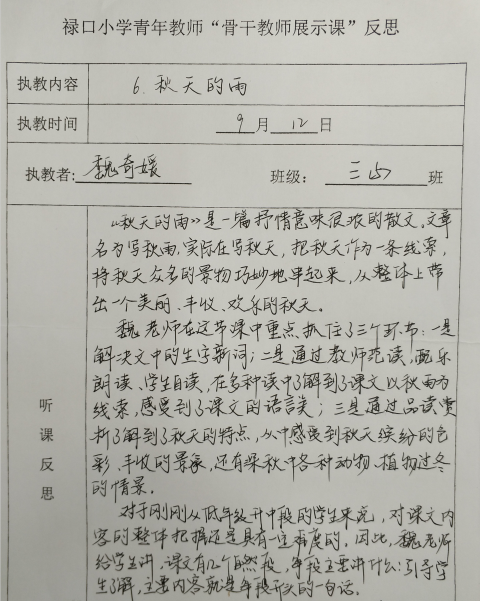 禄口小学青年教师“骨干教师展示课”反思
执教内容 6.秋天的雨
执教时间 9月12日
执教者:魏奇媛 班级:三(2)班
听课反思
《秋天的雨》是一篇抒情意味很浓的散文。文章
名为写秋雨,实际在写秋天,把秋天作为一条线索,
将秋天众多的景物巧妙地串起来,从整体上带
出一个美丽、丰收、欢乐的秋天。
魏老师在这节课中重点抓住了三个环节:一是
解决文中的生字新词;二是通过教师范读,配乐
朗读、学生自读,在多种读中了解到了课文以秋雨为
线索,感受到了课文的语言美;三是通过品读赏
析了解到了秋天的特点,从中感受到秋天缤纷的色
彩、丰收的景象,还有深秋中各种动物、植物过冬
的情景。
对于刚刚从低年级升中段的学生来说,对课文内
容的整体把握还是具有一定难度的。因此,魏老师
给学生讲,课文有几个自然段,每段主要讲什么;引导学
生了解,主要内容就是每段开头的一句话。